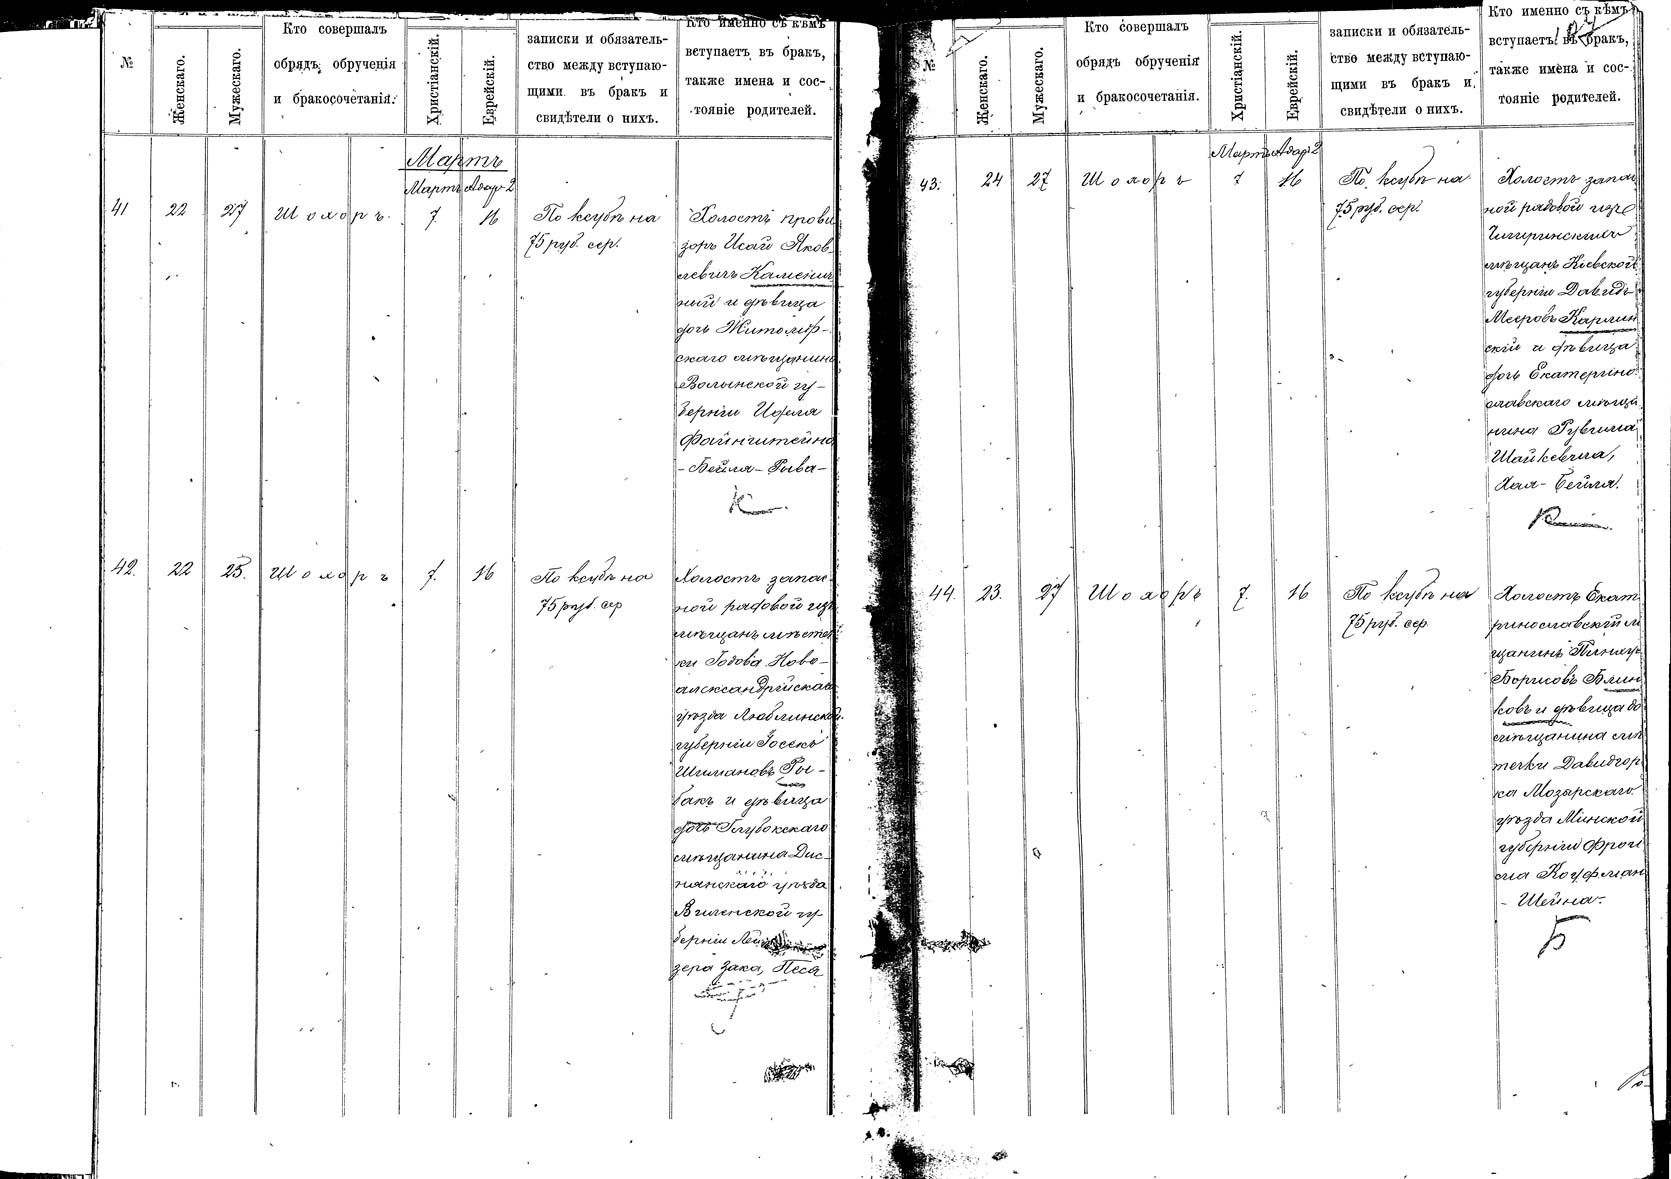 №
Женскаго.
Мужескаго.
Кто совершалъ
обрядъ обрученія
и бракосочетанія.
Христіанскій.
Еврейскій.
записки и обязатель-
ство между вступаю-
щими въ бракъ и
свидѣтели о нихъ.
Кто именно съ кѣмъ
вступаетъ въ бракъ,
также имена и сос-
тояніе родителей.
Мартъ
Мартъ Адаръ 2
41 22 27 Шохоръ. 7. 16 По ксубѣ на
75 руб. сер.
Холостъ прови
зоръ Исай Яков
левичъ Каменич
ный и дѣвица
дочь Житомір-
скаго мѣщанина
Волынской гу-
берніи Иделя
Файнштейна
- Бейля - Рыва -
К
42. 22 25. Шохоръ 7. 16 По ксубѣ на
75 руб. сер
Холостъ запас-
ной рядовой изъ
мѣщанъ мѣстеч
ки Годова Ново-
александрійскаго
уѣзда Люблинской
губерніи Іосекъ
Шимановъ Ры-
бакъ и дѣвица
дочь Глубокскаго
мѣщанина Дис-
нянскаго уѣзда
Виленской гу-
берніи Лей
зера Зака, Песя
№
Женскаго.
Мужескаго.
Кто совершалъ
обрядъ обрученія
и бракосочетанія.
Христіанскій.
Еврейскій.
записки и обязатель-
ство между вступаю-
щими въ бракъ и
свидѣтели о нихъ.
Кто именно съ кѣмъ
вступаетъ въ бракъ,
также имена и сос-
тояніе родителей.
Мартъ Адаръ 2
43. 24 27 Шохоръ 7 16 По ксубѣ на
75 руб. сер.
Холостъ запас
ной рядовой изъ
Чигиринскихъ
мѣщанъ Кіевской
губерніи Давидъ
Мееровъ Карлин
скій и дѣвица
дочь Екатерино
славскаго мѣща
нина Рувима
Шайкевича,
Хая - Бейля.
44. 23. 27 Шохоръ 7. 16 По ксубѣ на
75 руб. сер
Холостъ Екате
ринославскій мѣ
щанинъ Пинхусъ
Борисовъ Блин
ковъ и дѣвица до
мѣщанина мѣ
течки Давидгор
ка Мозырскаго
уѣзда Минской
губерніи Фрои
ма Коуфман
- Шейна -
Б